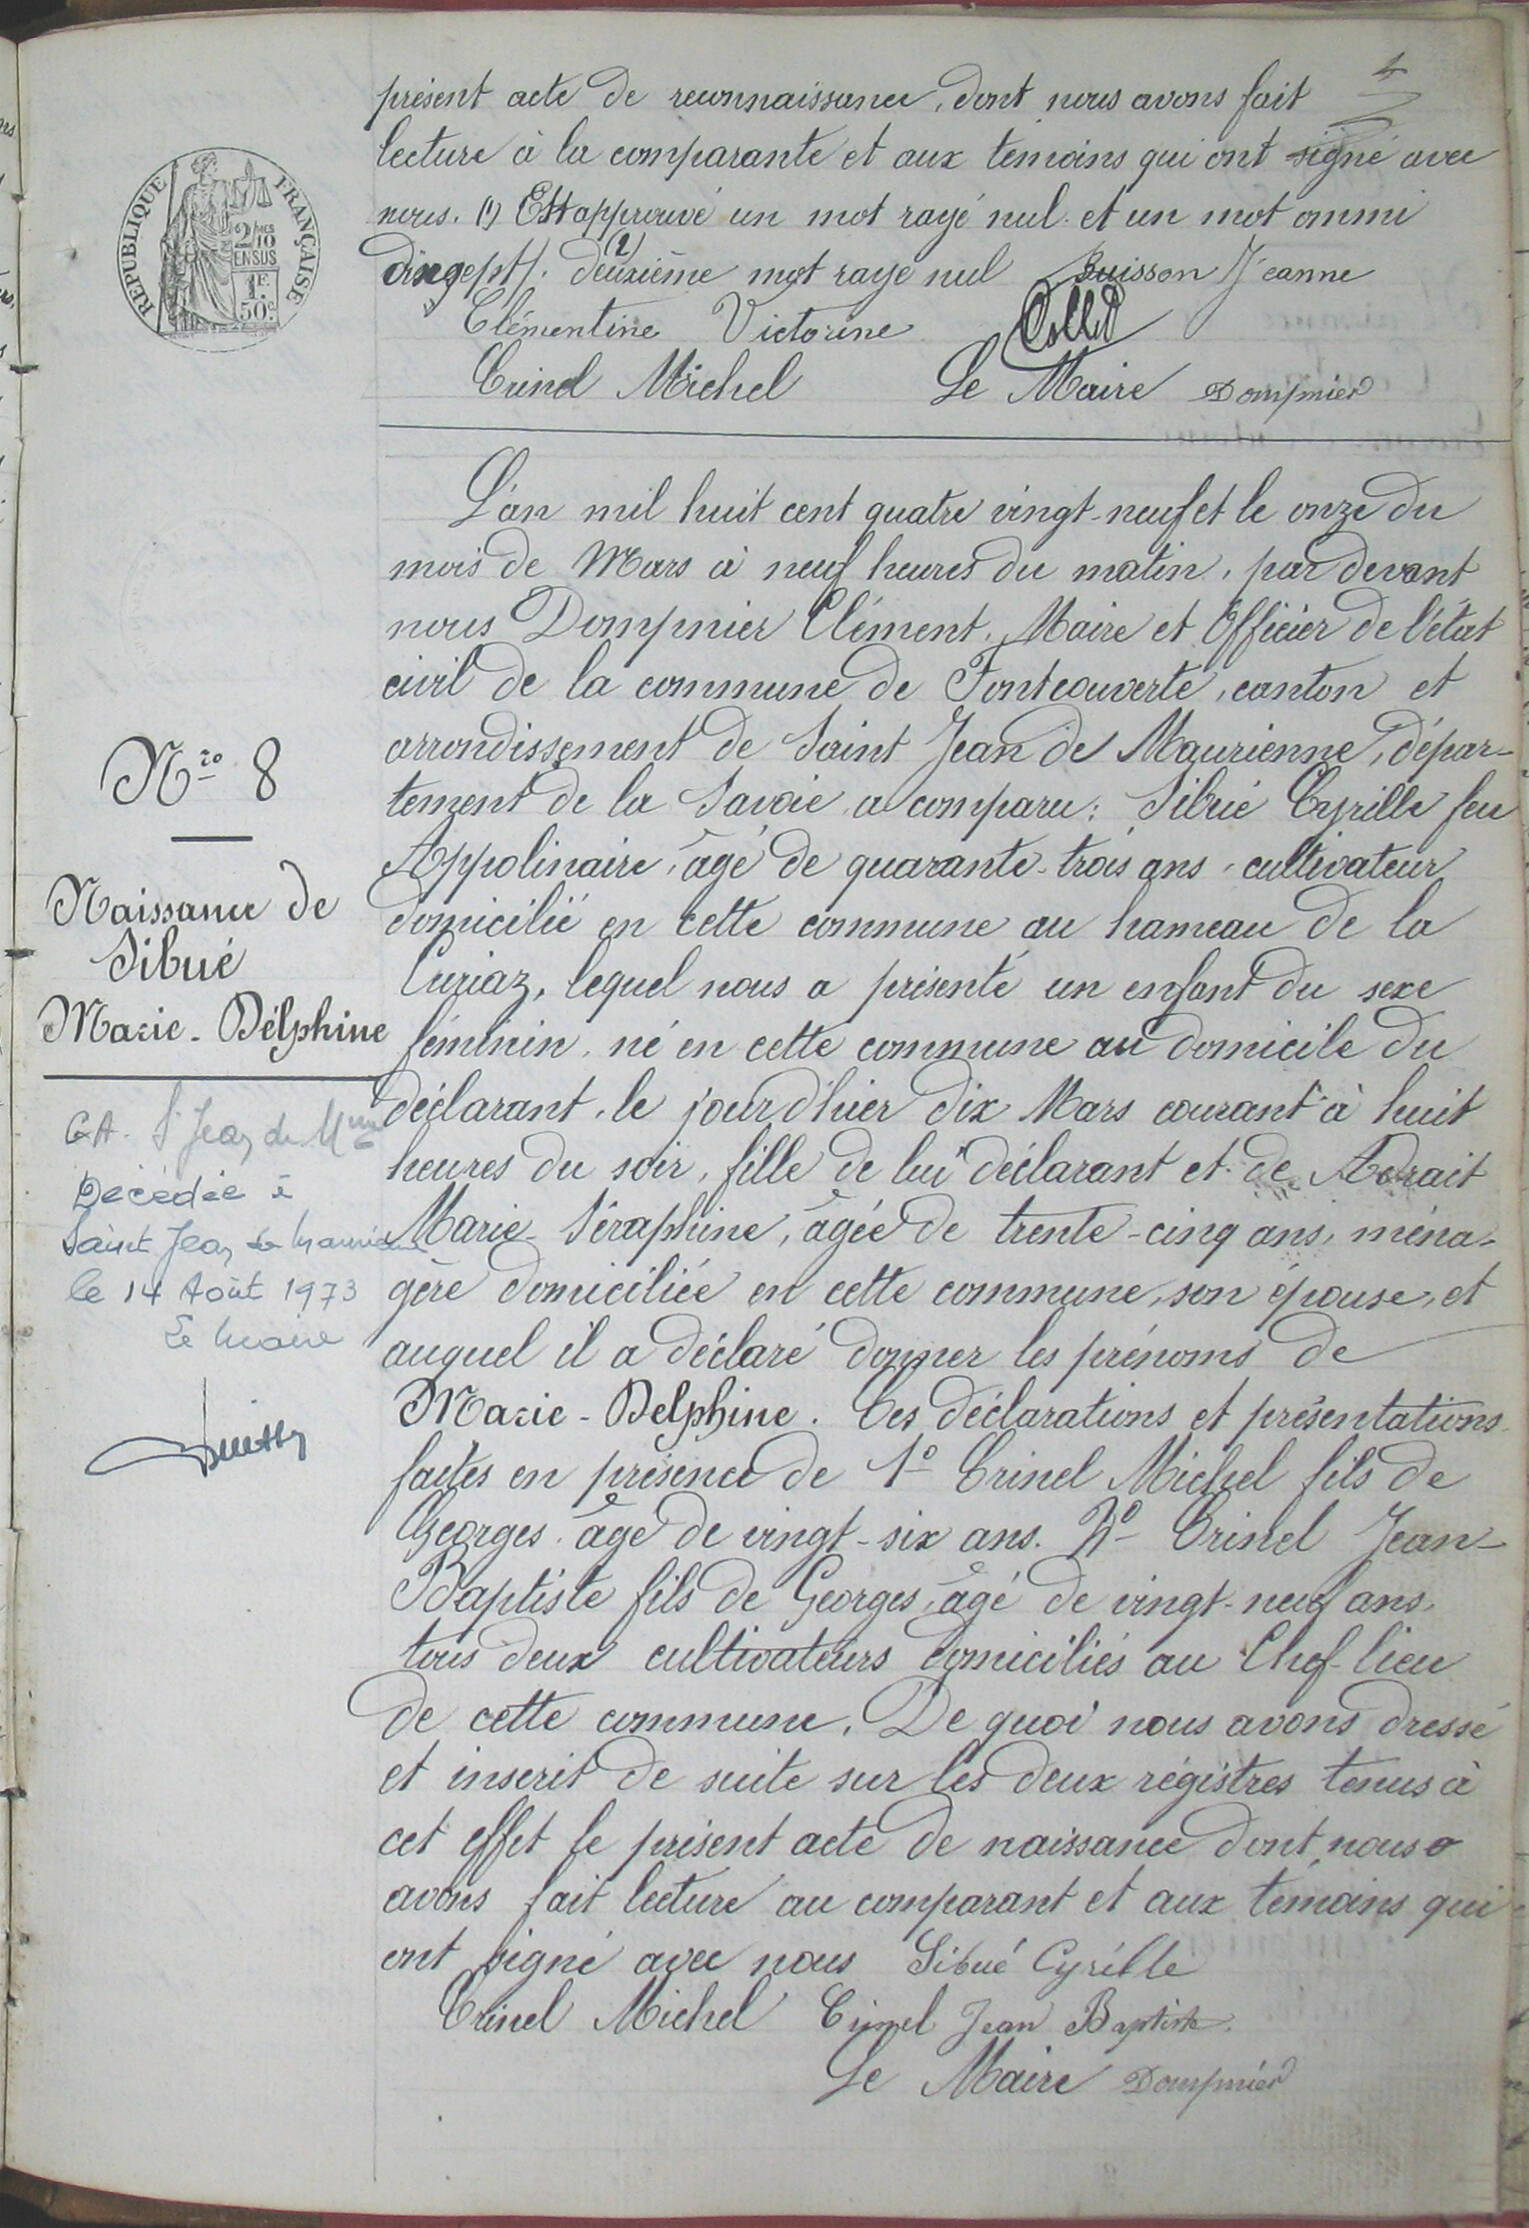 4
présent acte de reconnaissance, dont nous avons fait
lecture à la comparante et aux témoins qui ont signé avec
nous. (1) Est approuvé un mot rayé nul et un mot ommi
deuxième mot rayé nul Buisson Jeanne
(2)
Clémentine Victorine Collet
Crinel Michel Le Maire Dompnier
REPUBLIQUE FRANÇAISE
2/10MES
EN SUS
1F.
50c.
L'an mil huit cent quatre vingt-neuf et le onze du
mois de Mars à neuf heures du matin, par devant
nous Dompnier Clément, Maire et Officier de l'état
civil de la commune de Fontcouverte, canton et
arrondissement de Saint Jean de Maurienne, dépar-
tement de la Savoie a comparu: Sibué Cyrille feu
Appolinaire, âgé de quarante-trois ans, cultivateur
domicilié en cette commune au hameau de la
Curiaz, lequel nous a présenté un enfant du sexe
féminin, né en cette commune au domicile du
déclarant, le jour d'hier dix Mars courant à huit
heures du soir, fille de lui déclarant et de Adrait
Marie-Séraphine, âgée de trente-cinq ans, ména-
gère domiciliée en cette commune, son épouse, et
auquel il a déclaré donner les prénoms de
Marie-Delphine. Ces déclarations et présentations
faites en présence de 1º Crinel Michel fils de
Georges âgé de vingt-six ans. 2º Crinel Jean-
Baptiste fils de Georges, âgé de vingt-neuf ans,
tous deux cultivateurs domiciliés au Chef-lieu
de cette commune. De quoi nous avons dressé
et inscrit de suite sur les deux régistres tenus à
cet effet le présent acte de naissance dont nous
avons fait lecture au comparant et aux témoins qui
ont signé avec nous Sibué Cyrille
Crinel Michel Crinel Jean Baptiste.
Le Maire Dompnier
Nro 8
Naissance de
Sibué
Marie-Délphine
St Jean de Mne
Décédée à
Saint Jean de Maurienne
le 14 Août 1973
Le Maire